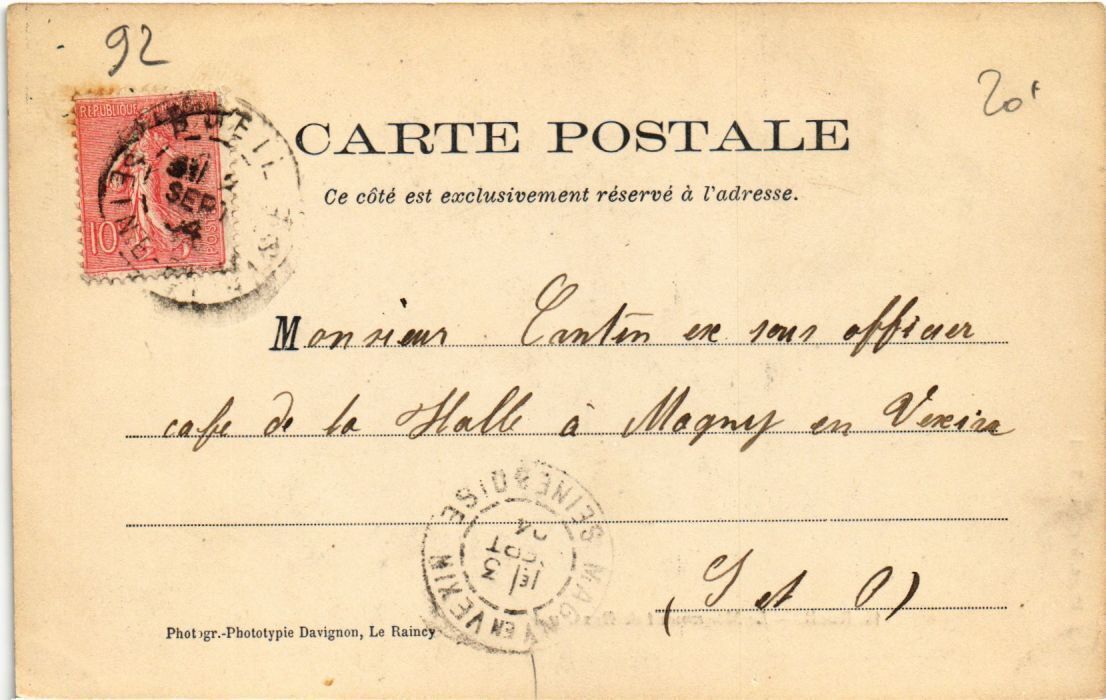 92
20f
RÉPUBLIQUE
10
POSTES
RUEIL
SEINE
SEPT
04
CARTE POSTALE
Ce côté est exclusivement réservé à l'adresse.
Monsieur Cantin ex sous officier
cafe de la Halle à Magny en Vexin
(S et O)
MAGNY EN VEXIN
SEINE & OISE
3
SEPT
04
Photogr.-Phototypie Davignon, Le Raincy